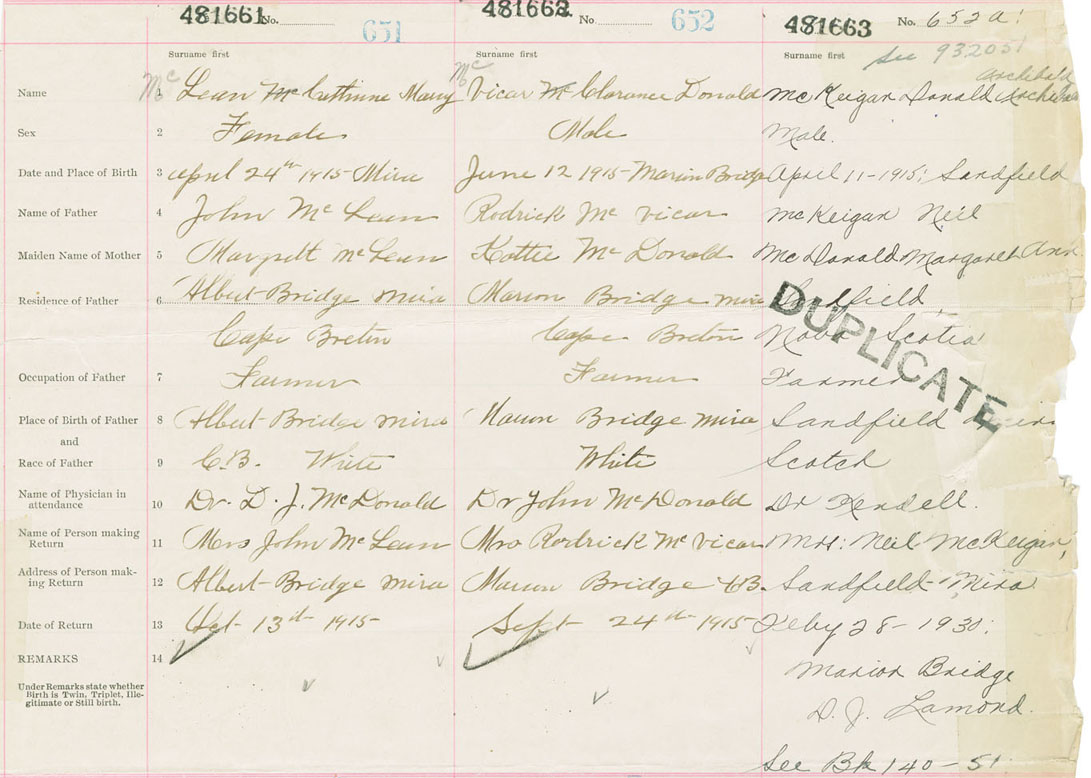 481661 No. 651 481662 No. 652 481663 No. 652a
See 932051
Surname first Surname first Surname first
Archibald
Name 1 Mc Lean Mc Cathrine Marry Mc Vicar Mc Clarance Donald McKeigan Donald Archibald
Sex 2 Female Male Male.
Date and Place of Birth 3 April 24th 1915 Mira June 12 1915 - Marion Bridge April 11-1915: Sandfield
Name of Father 4 John McLean Rodrick McVicar McKeigan Neil
Maiden Name of Mother 5 Margrett McLean Kattie McDonald McDonald Margaret Ann
Residence of Father 6 Albert Bridge mira Marion Bridge mira Sandfield,
Cape Breton Cape Breton Nova Scotia
DUPLICATE
Occupation of Father 7 Farmer Farmer Farmer
Place of Birth of Father 8 Albert Bridge mira Marion Bridge mira Sandfield
and
Race of Father 9 C.B. White White Scotch
Name of Physician in
attendance 10 Dr. D. J. McDonald Dr John McDonald Dr Kendell.
Name of Person making
Return 11 Mrs John McLean Mrs Rodrick McVicar Mrs: Neil McKeigan,
Address of Person mak-
ing Return 12 Albert Bridge mira Marion Bridge C.B. Sandfield - Mira
Date of Return 13 Oct 13th 1915 Sept 24th 1915 Feby 28-1930:
REMARKS 14 Marion Bridge
Under Remarks state whether
Birth is Twin, Triplet, Ille-
gitimate or Still birth.
D. J. Lamond.
See Bk 140-51